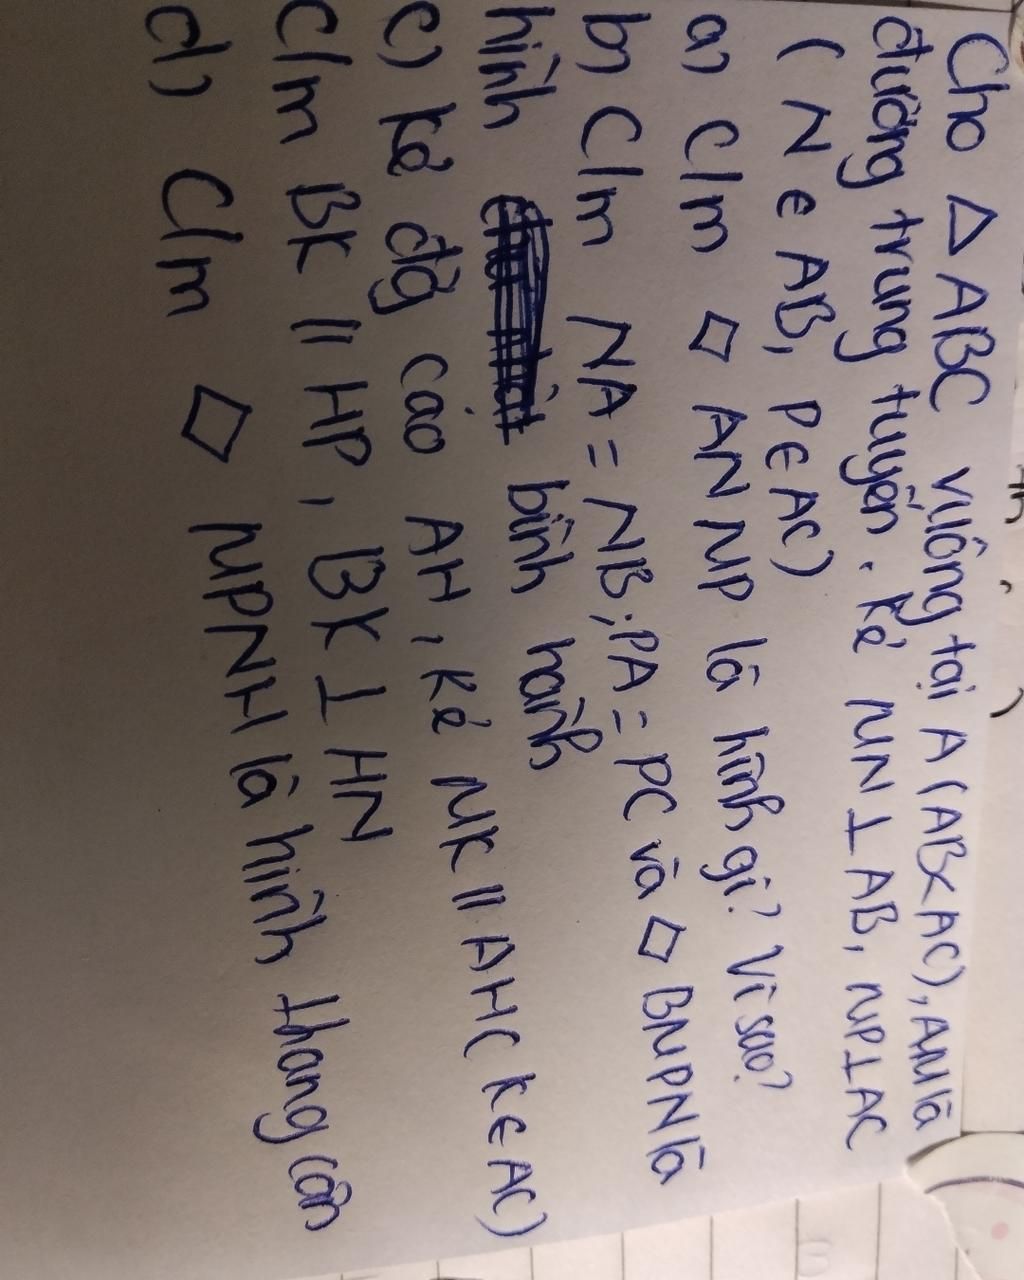 Cho △ ABC vuông tại A (AB<AC), AM là
đường trung tuyến. Kẻ MN ⊥ AB, MP⊥AC
( N ∈ AB, P∈AC)
a) C/m ◇ ANMP là hình gì? Vì sao?
b) C/m NA = NB; PA = PC và ◇ BMPN là
hình bình hành
c) Kẻ đg cao AH, kẻ MK || AH( K ∈ AC)
C/m BK || HP, BK ⊥ HN
d) C/m ◇ MPNH là hình thang cân